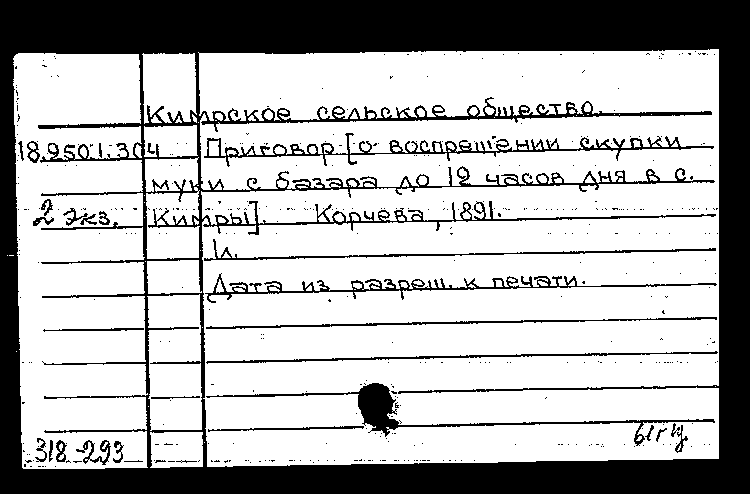 Кимрское сельское общество.
18.250.1.304 Приговор [о воспрещении скупки
муки с базара до 12 часов дня в с.
2 экз. Кимры]. Корчева, 1891.
1л.
Дата из разреш. к печати.
318-293